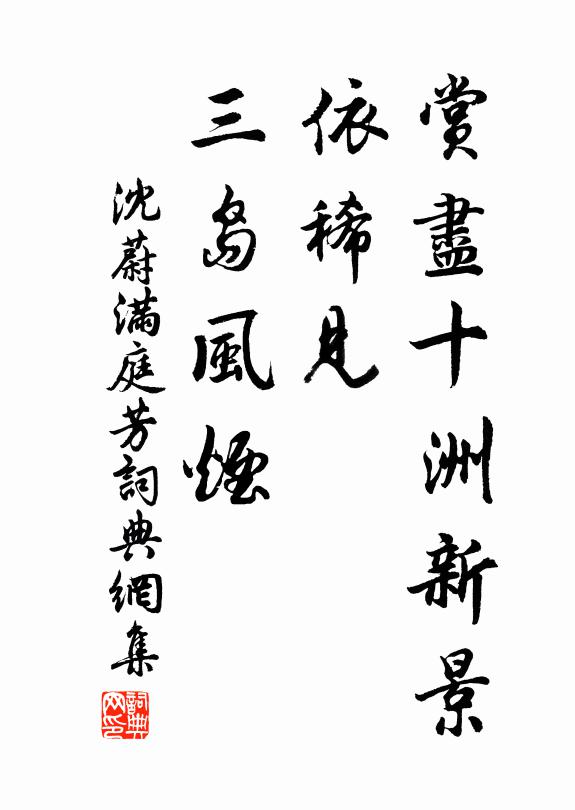 賞盡十洲新景
依稀見
三島風煙
沈蔚滿庭芳詞典網集
詞典网印